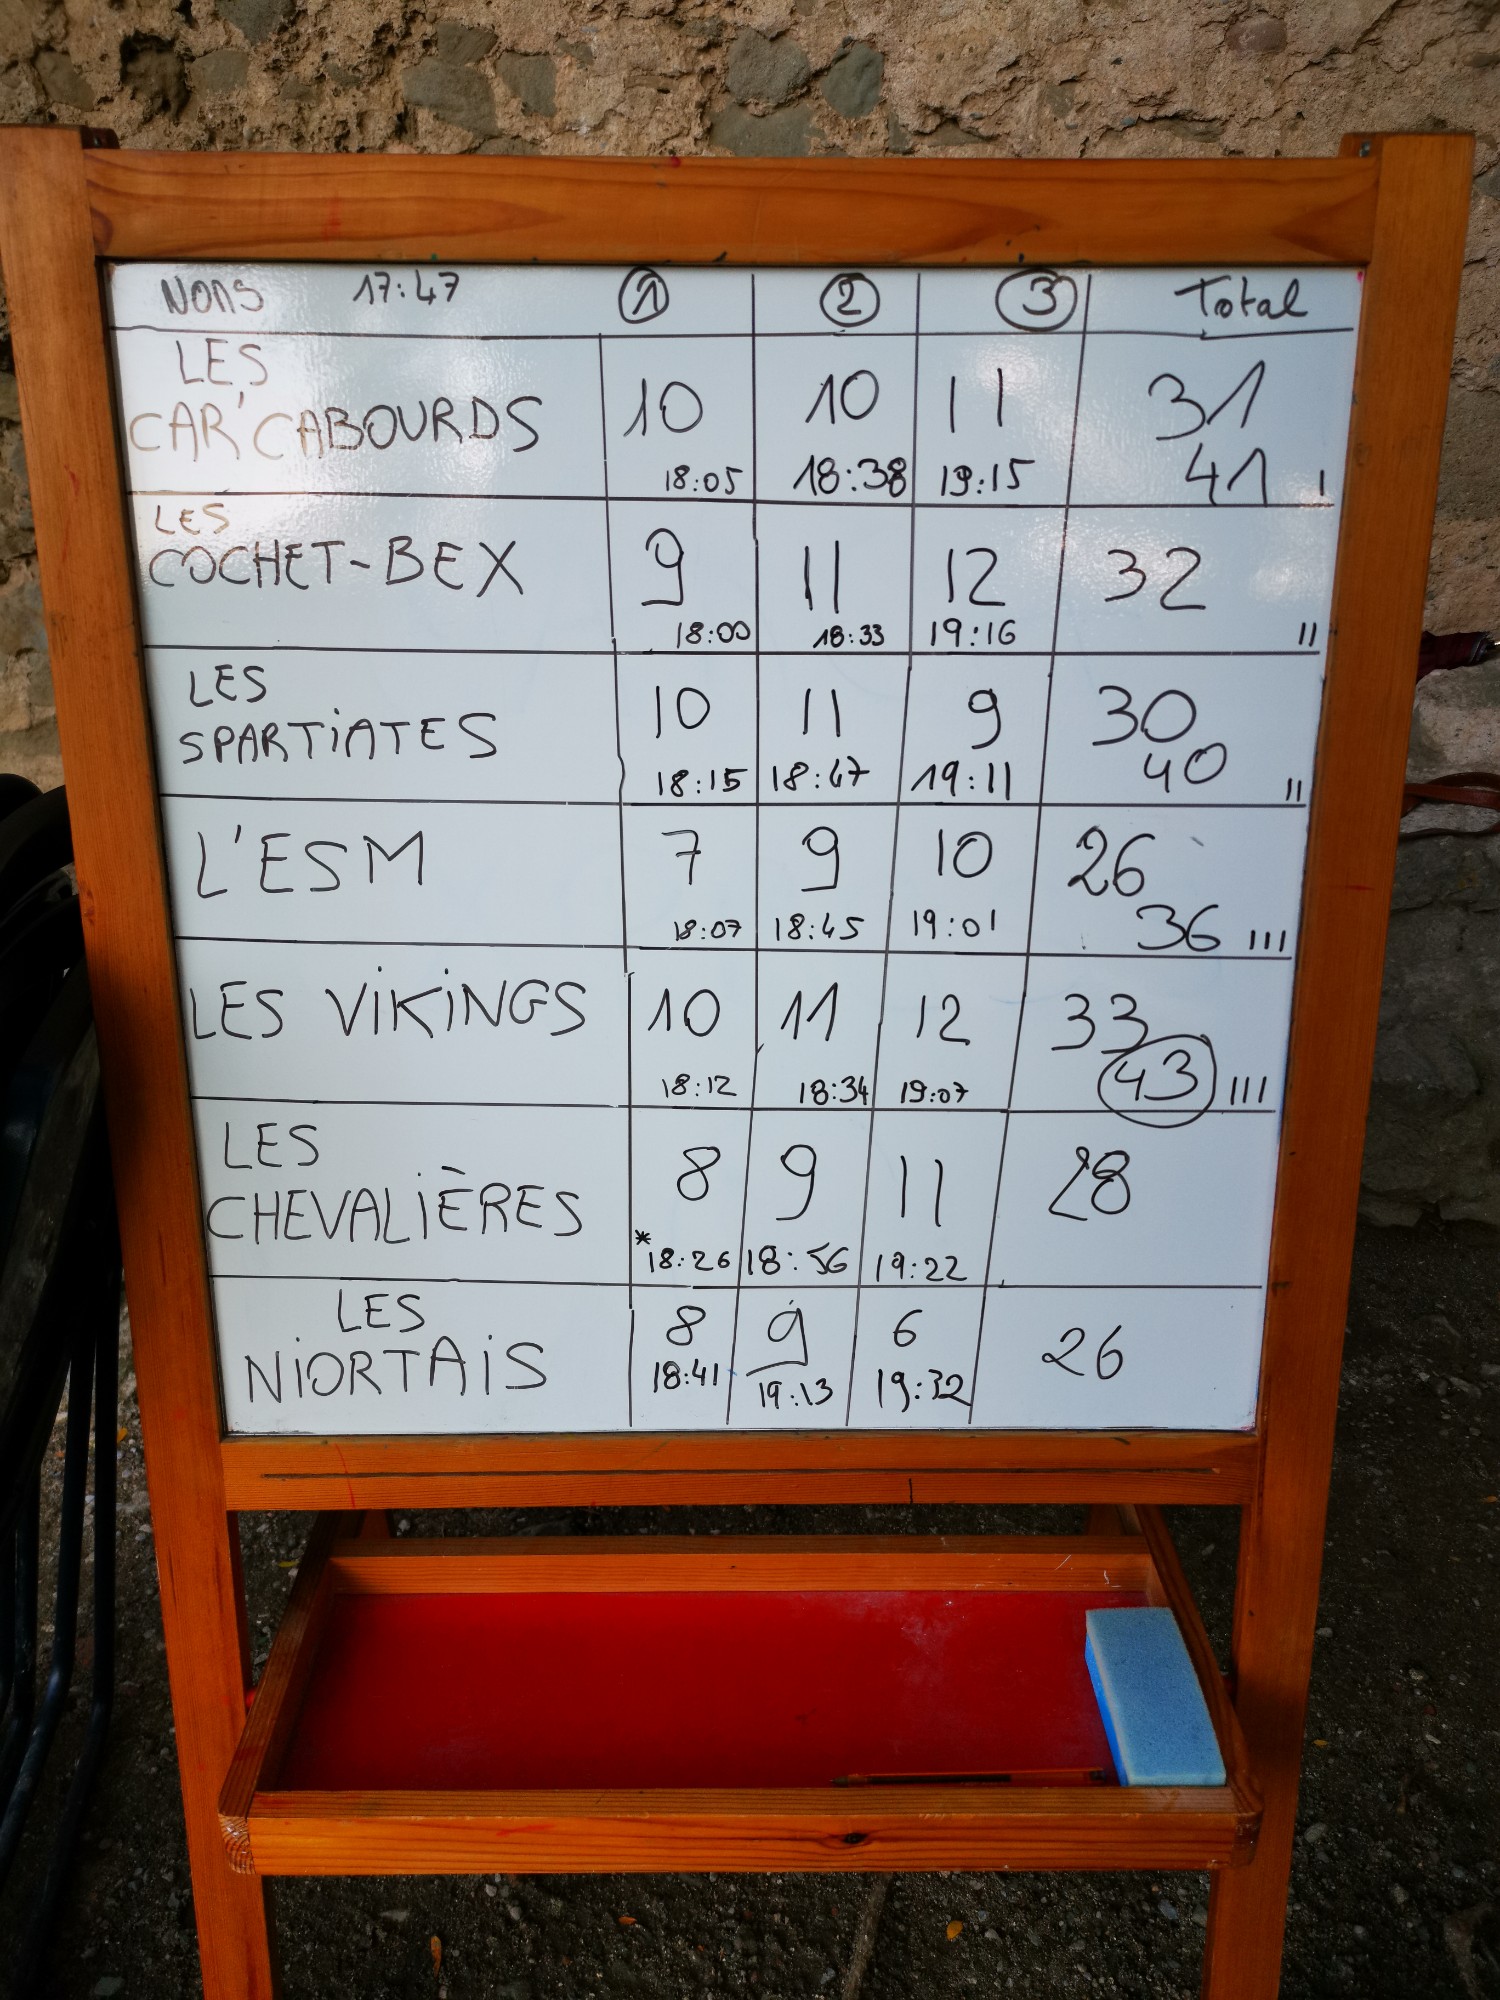 NOMS 17:47 1 2 3 Total
LES
CAR'CABOURDS 10 10 11 31
18:05 18:38 19:15 41 I
LES
COCHET-BEX 9 11 12 32
18:00 18:33 19:16 II
LES
SPARTIATES 10 11 9 30
18:15 18:47 19:11 40 II
L'ESM 7 9 10 26
18:07 18:45 19:01 36 III
LES VIKINGS 10 11 12 33
18:12 18:34 19:07 43 III
LES
CHEVALIÈRES 8 9 11 28
*18:26 18:56 19:22
LES 8 9 6
NIORTAIS 18:41 19:13 19:32 26